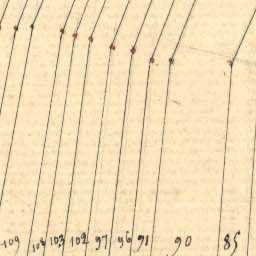 109 108 103 102 97 96 91 90 85